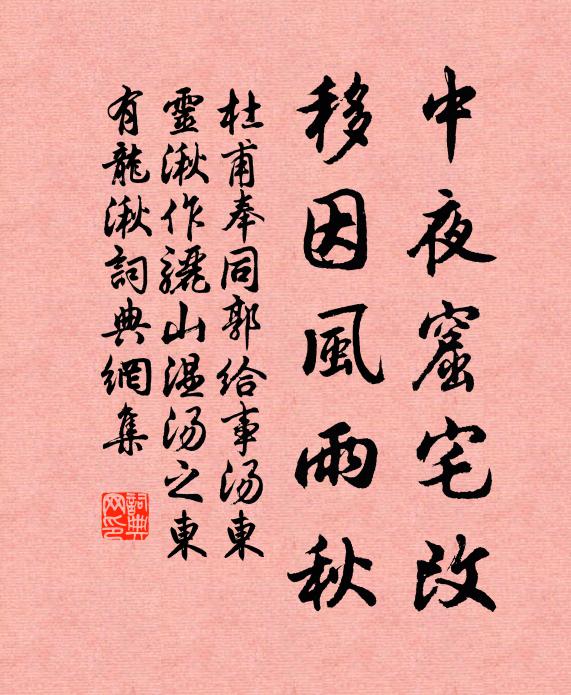 中夜窟宅改
移因風雨秋
杜甫奉同郭給事汤東
靈湫作驪山温汤之東
有龍湫詞典網集
詞典网印